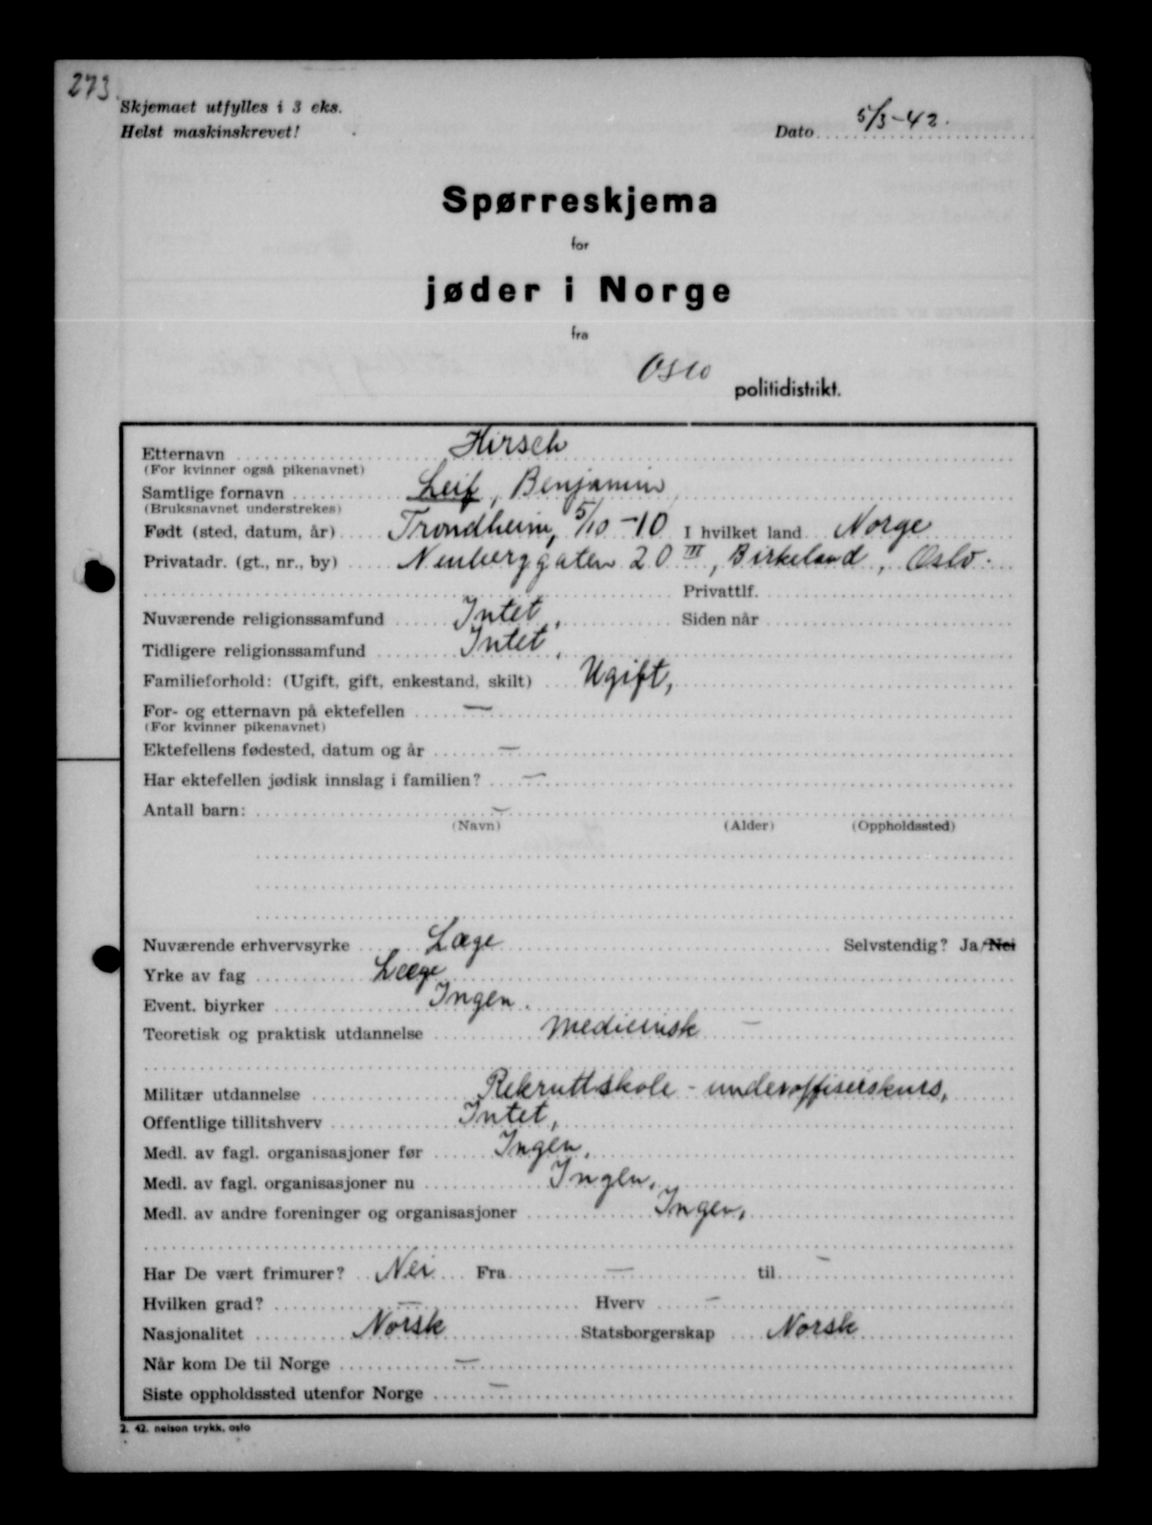 273.
Skjemaet utfylles i 3 eks.
Helst maskinskrevet!
Dato 5/3-42.
Spørreskjema
for
jøder i Norge
fra
Oslo
politidistrikt.
Etternavn Hirsch
(For kvinner også pikenavnet)
Samtlige fornavn Leif, Benjamin
(Bruksnavnet understrekes)
Født (sted, datum, år) Trondheim, 5/10-10 I hvilket land Norge
Privatadr. (gt., nr., by) Neuberggaten 20 III, Birkelund, Oslo.
Privattlf.
Nuværende religionssamfund Intet, Siden når
Tidligere religionssamfund Intet,
Familieforhold: (Ugift, gift, enkestand, skilt) Ugift,
For- og etternavn på ektefellen —
(For kvinner pikenavnet)
Ektefellens fødested, datum og år —
Har ektefellen jødisk innslag i familien? —
Antall barn: —
(Navn) (Alder) (Oppholdssted)
Nuværende erhvervsyrke Læge Selvstendig? Ja/Nei
Yrke av fag Læge
Event. biyrker Ingen.
Teoretisk og praktisk utdannelse Medicinsk —
Militær utdannelse Rekruttskole - underoffiserskurs,
Offentlige tillitshverv Intet,
Medl. av fagl. organisasjoner før Ingen,
Medl. av fagl. organisasjoner nu Ingen,
Medl. av andre foreninger og organisasjoner Ingen,
Har De vært frimurer? Nei Fra — til —
Hvilken grad? — Hverv —
Nasjonalitet Norsk Statsborgerskap Norsk
Når kom De til Norge —
Siste oppholdssted utenfor Norge —
2. 42. nelson trykk, oslo